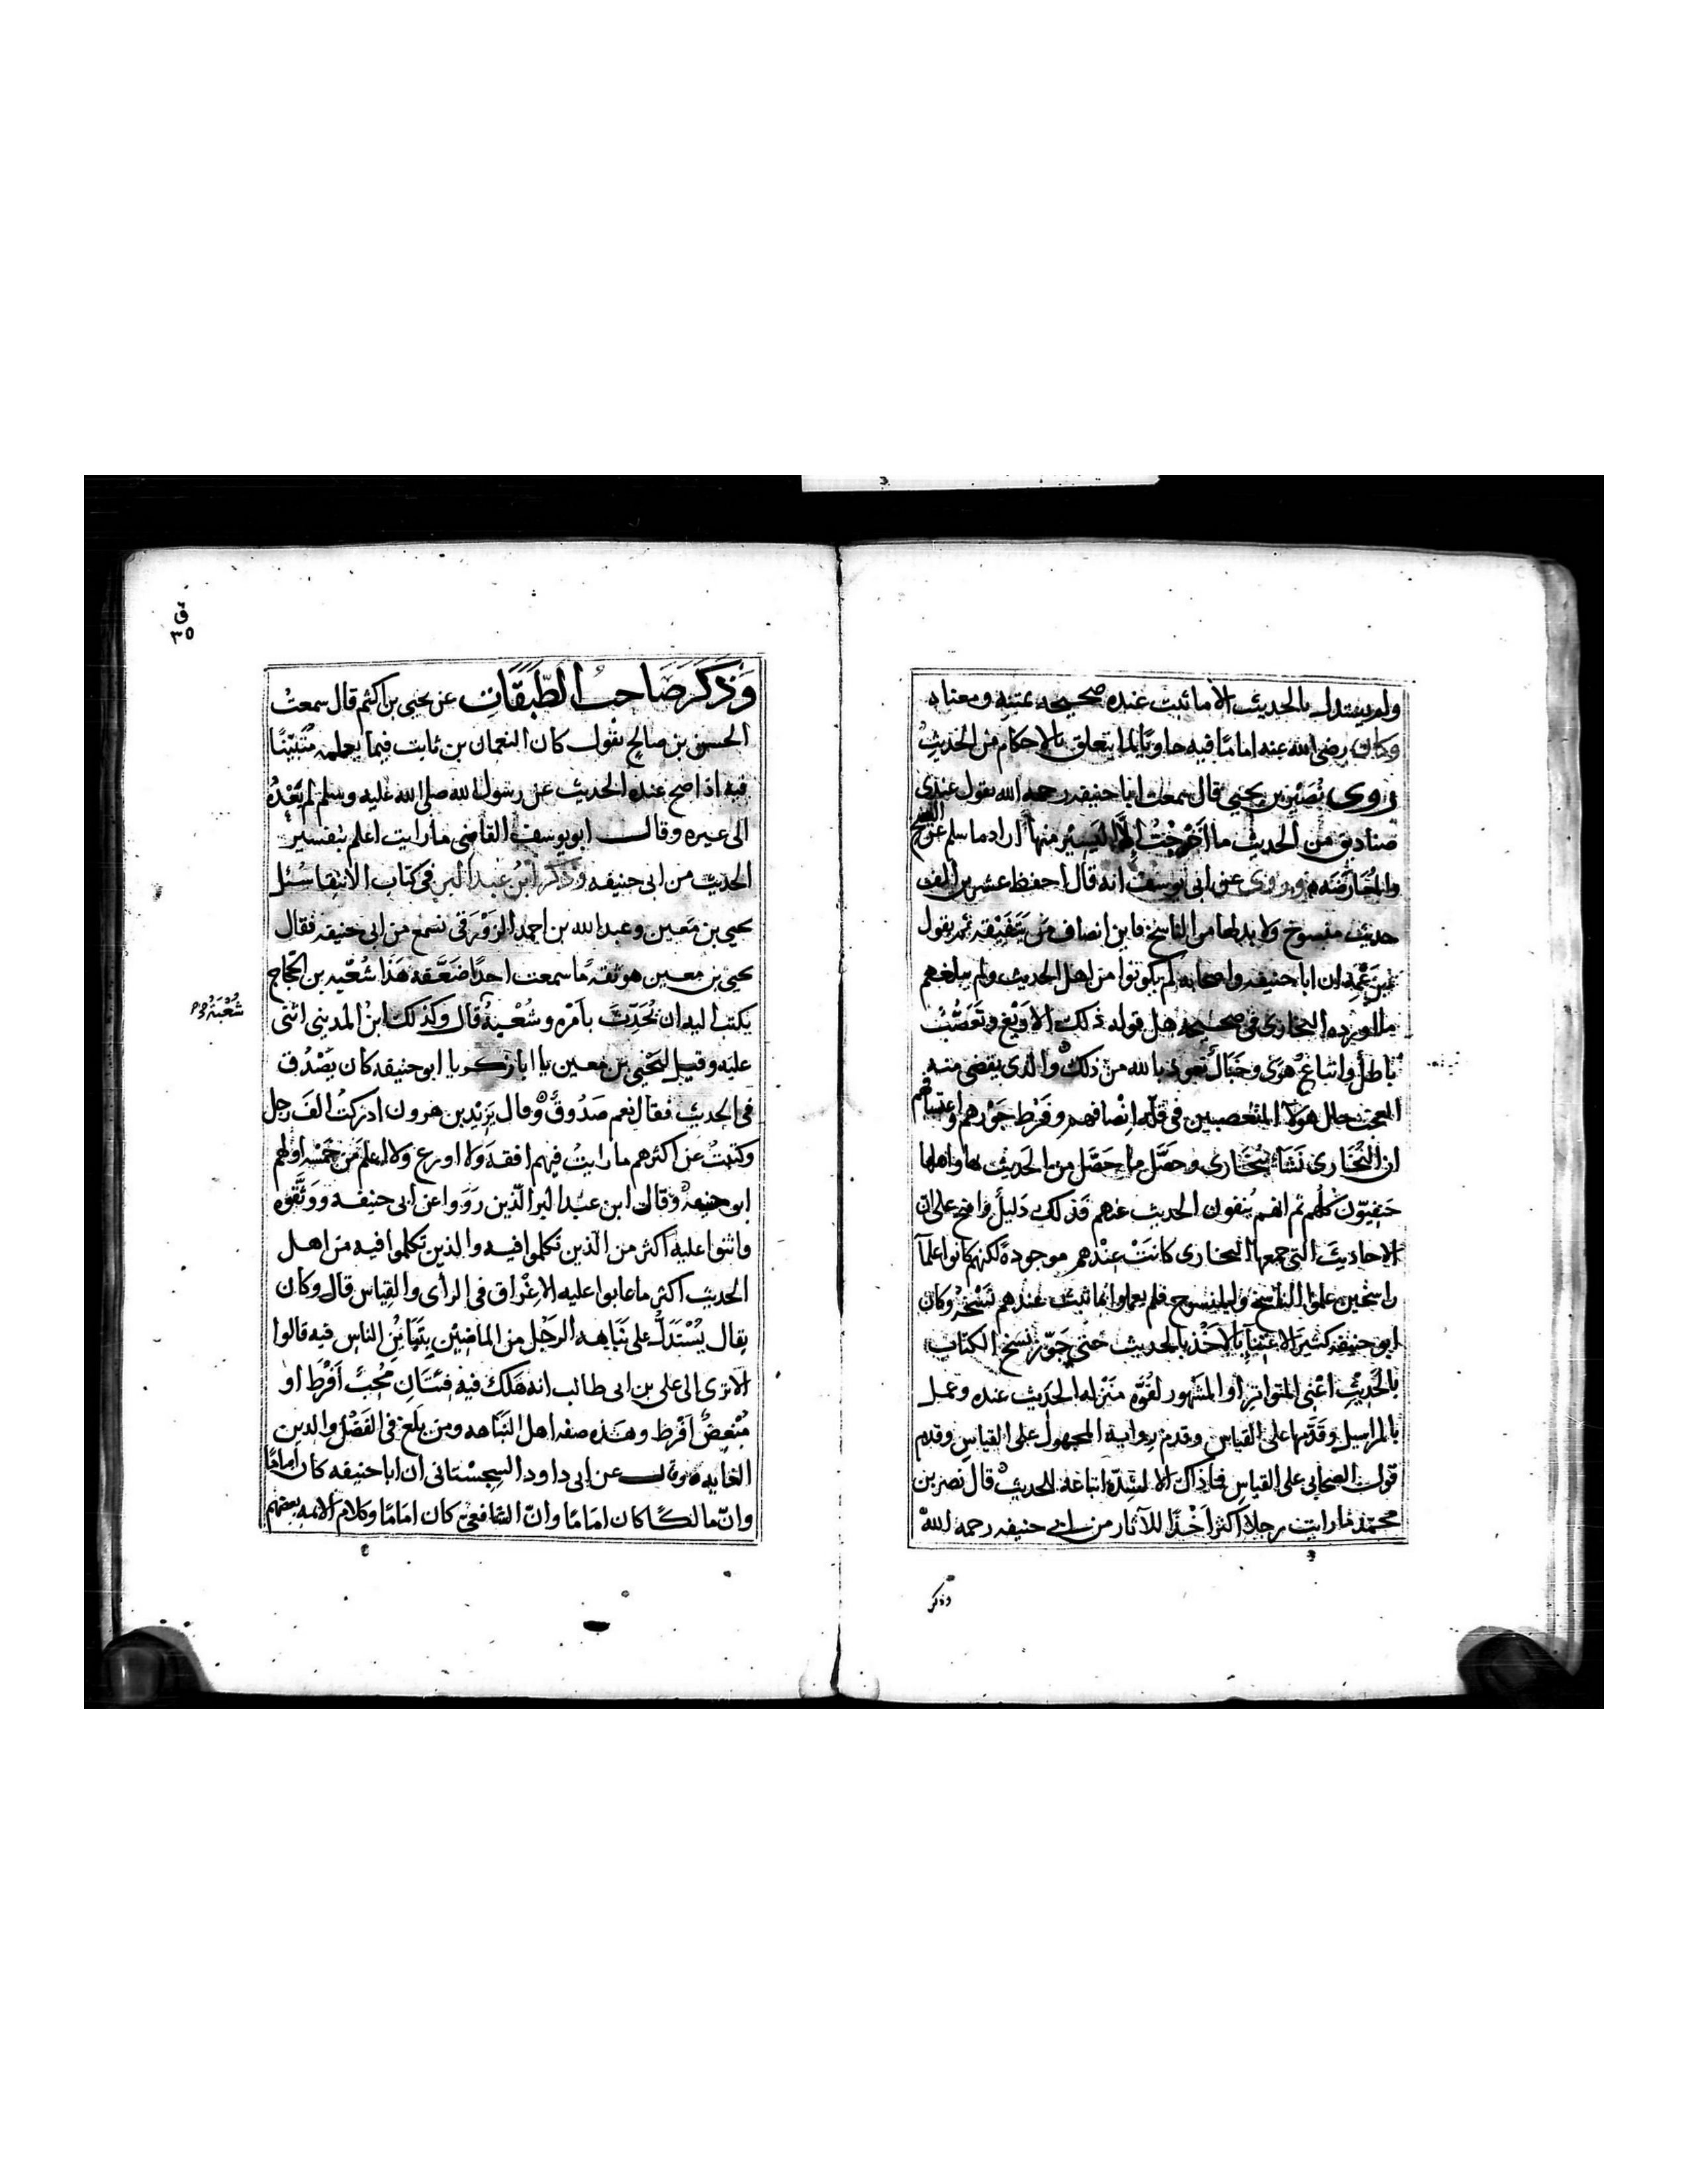 ولم يستدل بالحديث الا ما ثبت عنده صحيحه بمتنه ومعناه
وكان رضى الله عنه اماما فيه حاويًا لما يتعلق بالاحكام من الحديث
روى نُصَيْر بن يحيى قال سمعت ابا حنيفه رحمه الله يقول عندى
صناديق من الحديث ما اَخرجْتُ الَّا اليَسِيْر منها اراد ما سلم عن النسخ
والمُعارضَه وروى عن ابى يوسف انه قال احفظ عشرين الف
حديث منسوخ ولا بد لها من الناسخ فاين انصاف من يَتَفَيقه ثم يقول
عن ان ابا حنيفه واصحابه لم يكونوا من اهل الحديث ولم يبلغهم
ما اورده البخارى فى صحيحه هل قوله ذلك الا وَيْغ وتعَصُّبُ
باطل واتباع هوَى وخَبَال نعوذ بالله من ذلك والذى يقضى منه
العجب حال هولاء المتعصبين فى قله اِنصافهم وفَرْط جَوْرهم
ان البُخَارى نَشَأ ببُخَارى وحصَّل ما حَصَّل من الحديث بها واهلها
حَنَفِيّون كلهم ثم انهم يُنفون الحديث عنهم فَذلك دَليلٌ واضح على ان
الاحاديث التى جمعها البخارى كانَتْ عِنْدهم موجودة لكنهم كانوا علمآ
راسخين علموا الناسخ والمنسوخ فلم يعملوا بما ثبت عندهم نَسْخه وكان
ابو حنيفه كثير الاعتنآ بالاخْذ بالحديث حتى جَوّز نسخ الكتاب
بالحَديْث اعْنى المتواتر او المشهور لقُوّه مَنزله الحديث عنده وعمل
بالمراسيل وقَدّمها على القياس وقدم رواية المجهول على القياس وقدم
قول الصحابى على القياس فما ذاك الا لشدّه اتباعه للحديث قال نصر بن
محمد ما رايت رجلا اكثر اَخْذًا للآثار من ابى حنيفه رحمه الله
وذكر
ق
٣٥
وَذَكَرَ صَاحبُ الطّبَقَاتِ عن يحيى بن اكثم قال سمعت
الحسن بن صالح يقول كان النعمان بن ثابت فيما يعلمه مُتَثبّتًا
فيه اذا صح عنده الحديث عن رسول الله صلى الله عليه وسلم لم يَعْدُه
الى غيره وقال ابو يوسف القاضى ما رايت اعلم بتفسير
الحديث من ابى حنيفه وذكر ابن عبد البر فى كتاب الانتقا سُئل
يحيى بن مَعين وعبد الله بن احمد الدَوْرَقى نسمع من ابى حنيفه فقال
يحيى بن معين هو ثقه ما سمعت احدًا ضَعَّفه هَذا شُعْبه بن الحَجّاج
يكتب اليه ان يُحَدّث بامْره وشُعْبة قال وكذلك ابنُ المديني اثنى
شُعْبَةُ
عليه وقيل ليَحْيى بن معين يا ابا زكريا ابو حنيفه كان يَصْدُق
فى الحديث فقال نعم صَدُوقٌ وقال يَزيْد بن هرون ادْرَكتُ الفَ رجل
وكَتبْتُ عن اكثرهم ما رايتُ فيهم افقه ولا اورع ولا اعلم من خَمْسه اولهم
ابو حنيفه وقال ابن عبد البر الّذين رَوَوا عن ابى حنيفه ووَثَّقُوه
واثنوا عليه اكثر من الّذين تَكلموا فيه والذين تَكلموا فيه من اهل
الحديث اكثر ما عابوا عليه الاِغْراق فى الراى والقِياس قال وكان
يقال يُسْتَدَلُّ على نَبَاهه الرجُل من الماضِيْن بِتَبَايُنِ الناس فيه قالوا
الا ترى الى على بن ابى طالب انه هَلك فيه فئتَان مُحِبٌّ اَفْرَط او
مُبْغِضٌ اَفْرط وهَذه صفه اهل النَبَاهه ومن بَلَغ فى الفَضْل والدين
الغايه وقال عن ابى داود السِجسْتانى ان ابا حنيفه كان اِمَامًا
وانّ مالكًا كان امَامًا وانّ الشافعى كان امَامًا وكلام الائمه بعضهم